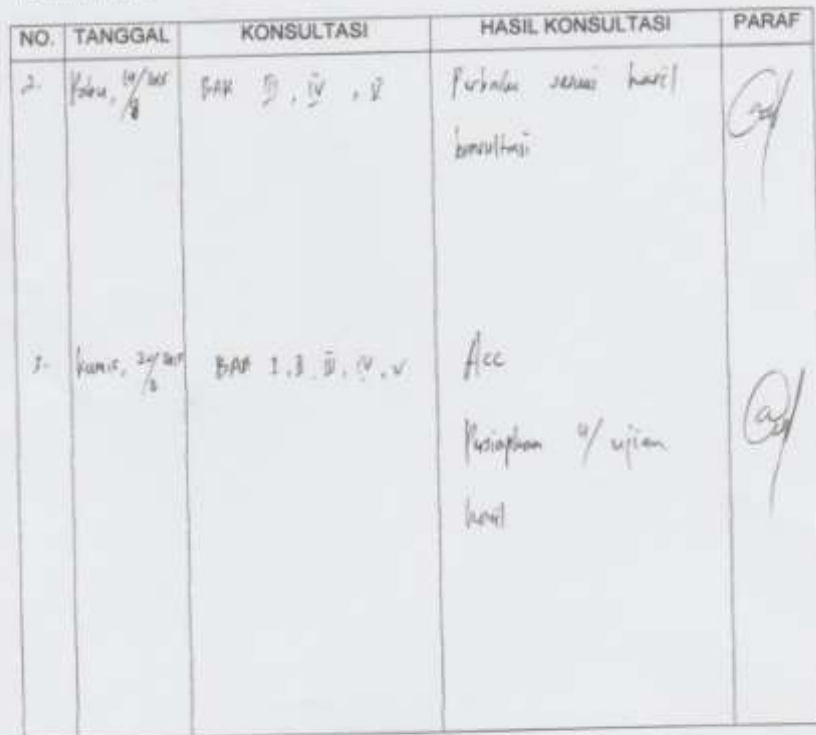 NO. TANGGAL KONSULTASI HASIL KONSULTASI PARAF
2. Rabu, BAB III, IV, V Perbaiki sesuai hasil
konsultasi
3. Kamis, BAB I, II, III, IV, V Acc
Persiapkan u/ ujian
hasil